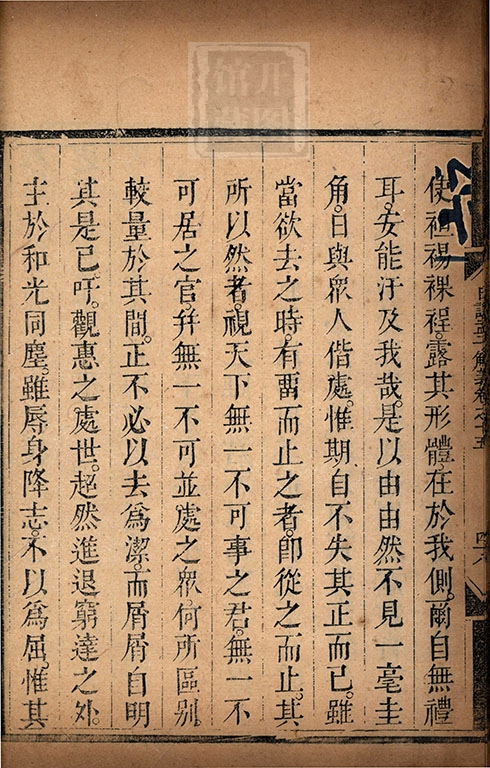 使袒裼裸裎。露其形體。在於我側。爾自無禮
耳。安能汙及我哉。是以由由然不見一毫圭
角。日與眾人偕處。惟期自不失其正而已。雖
當欲去之時。有畱而止之者。卽從之而止。其
所以然者。視天下無一不可事之君。無一不
可居之官。幷無一不可並處之眾。何所區別
較量於其間。正不必以去為潔。而屑屑自明
其是已。吁。觀惠之處世。超然進退窮達之外。
主於和光同塵。雖辱身降志。不以為屈。惟其